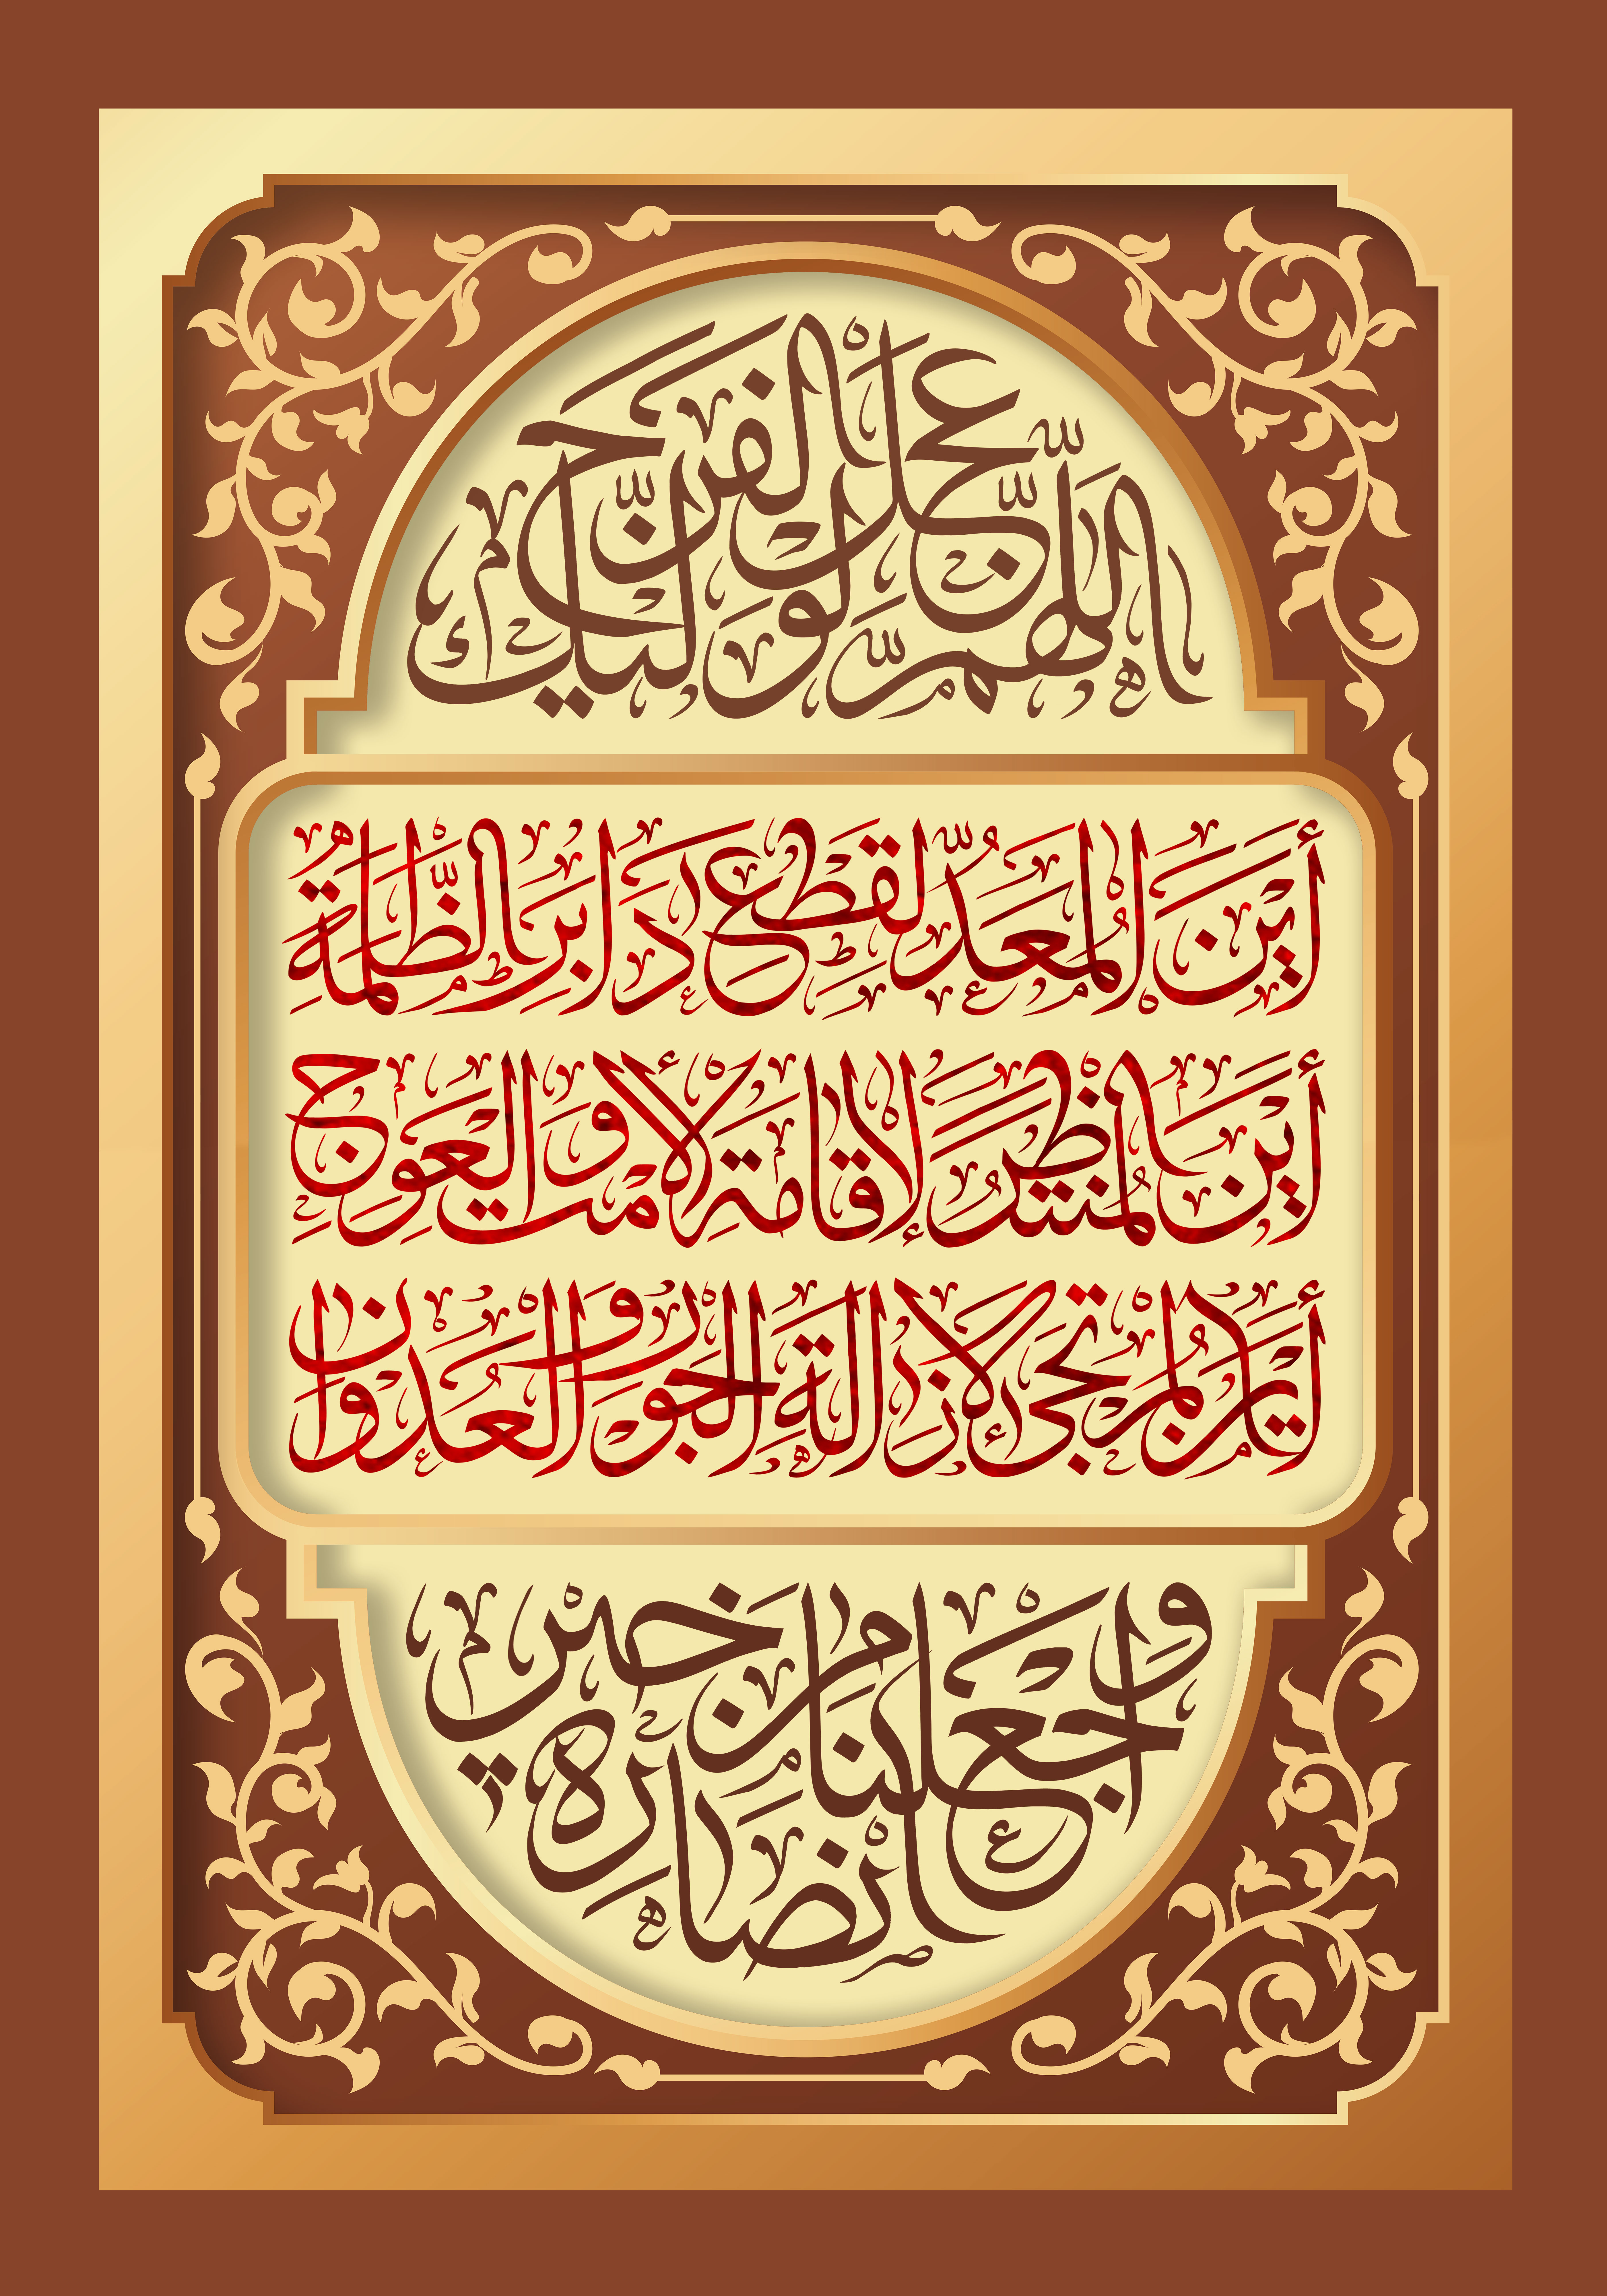 اللّٰهُمَّ عَجِّلْ لِوَلِيِّكَ الْفَرَجَ
أَيْنَ الْمُعَدُّ لِقَطْعِ دَابِرِ الظَّلَمَةِ
أَيْنَ الْمُنْتَظَرُ لِإِقَامَةِ الْأَمْتِ وَالْعِوَجِ
أَيْنَ الْمُرْتَجَىٰ لِإِزَالَةِ الْجَوْرِ وَالْعُدْوَانِ
وَاجْعَلْنَا مِنْ خَيْرِ أَنْصَارِهِ